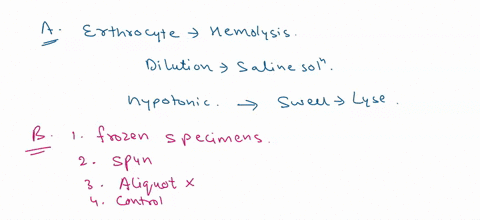 A. Erthrocyte → Hemolysis.
Dilution → Saline solⁿ.
Hypotonic. → Swell → Lyse.
B. 1. frozen specimens.
2. spun
3. Aliquot x
4. Control